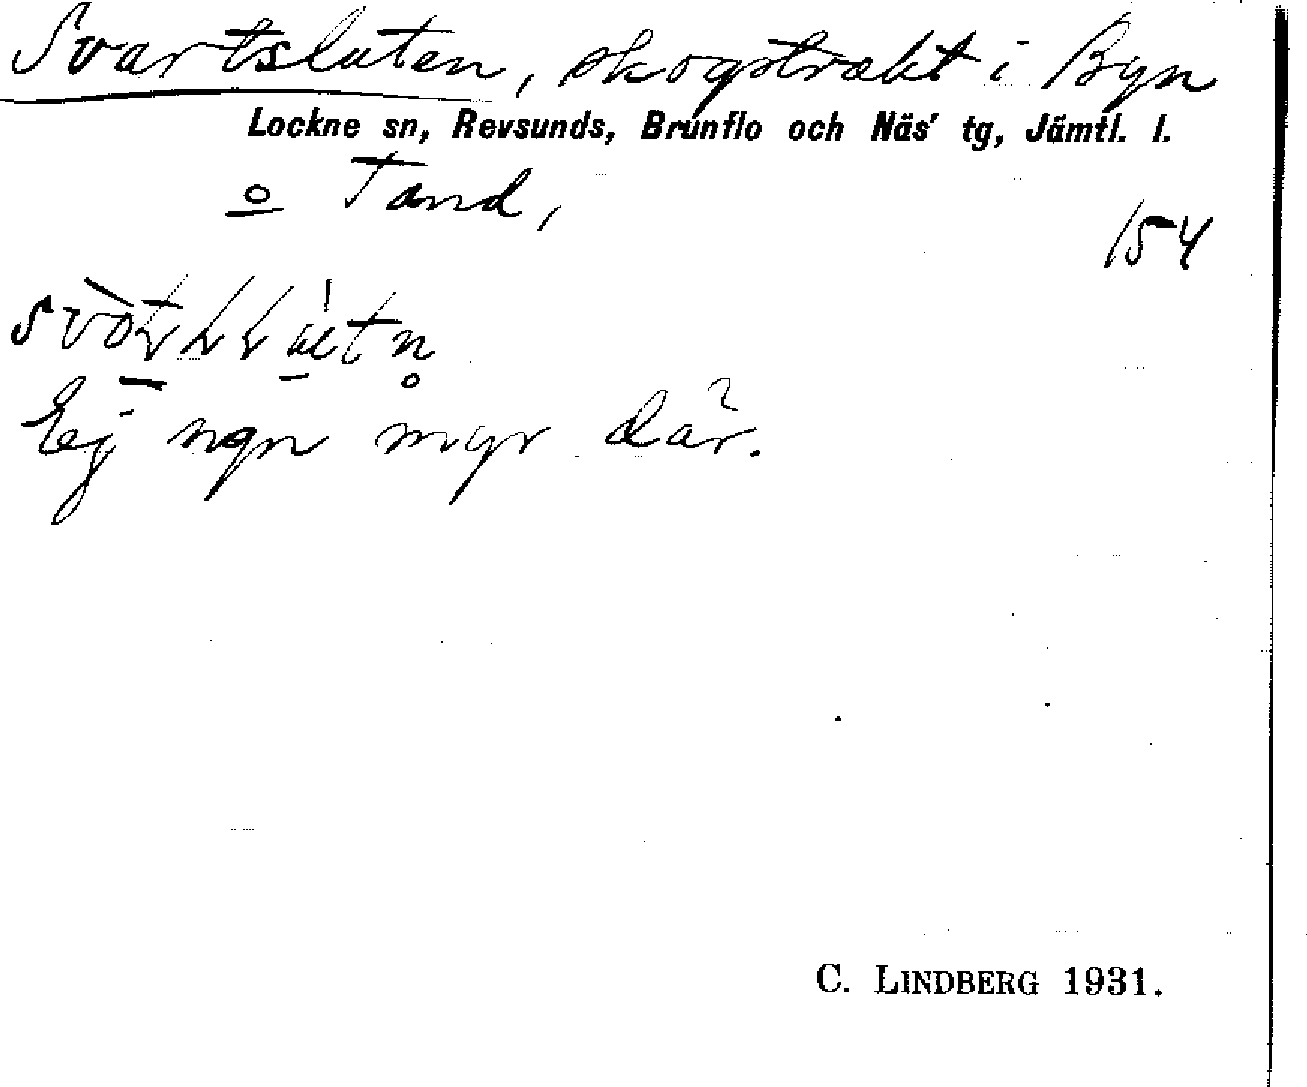 Svartslåten, skogstrakt i Byn
Lockne sn, Revsunds, Brunflo och Näs' tg, Jämtl. l.
o Tand,
154
Ej ngn myr där.
C. LINDBERG 1931.